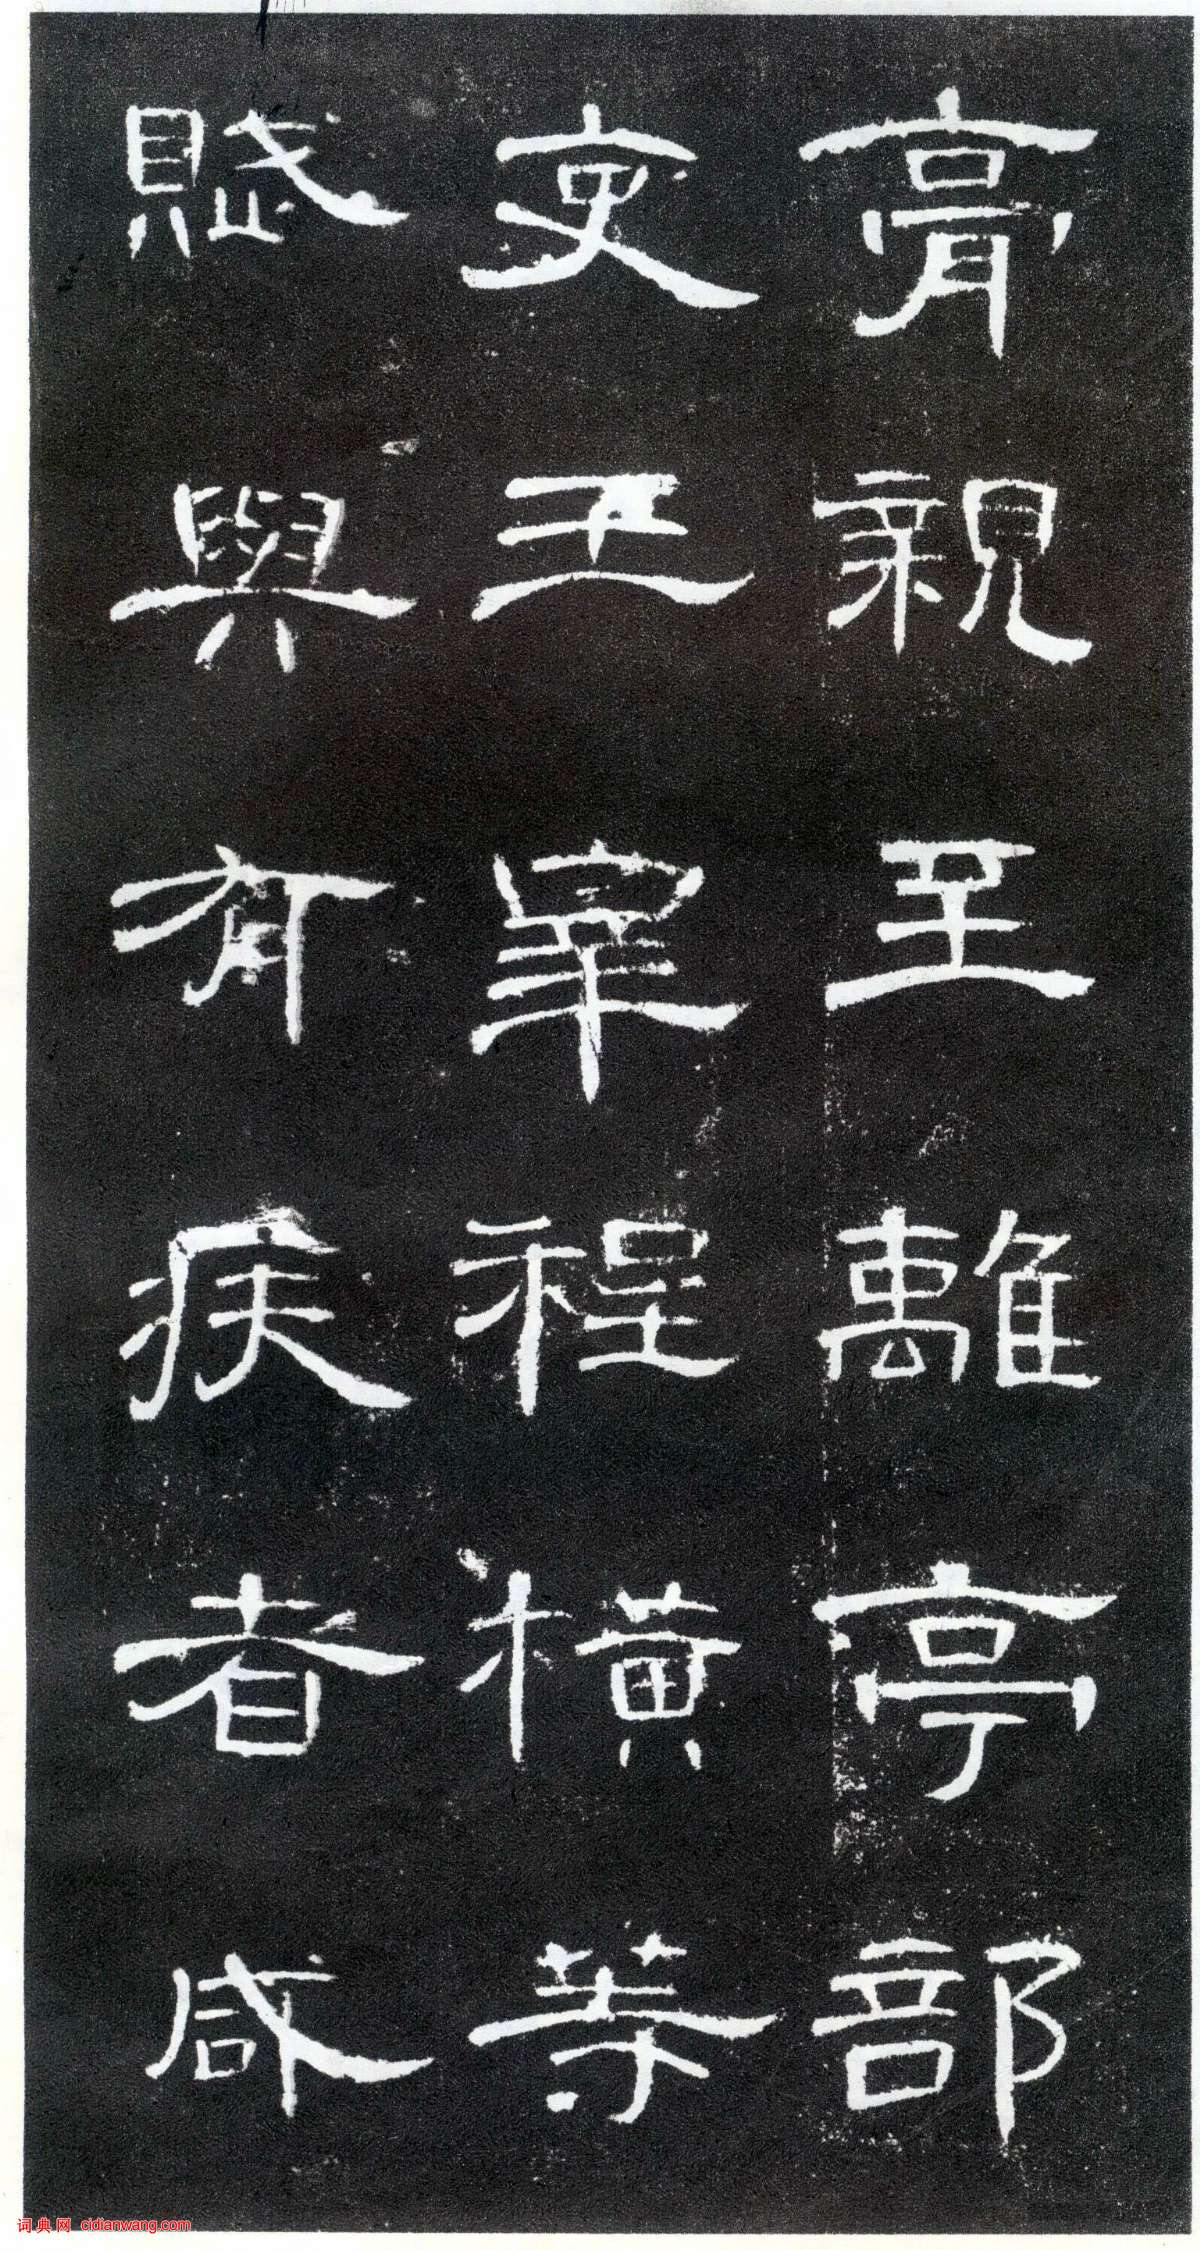 膏親至離亭部
吏王宰程橫等
賦與有疾者咸
词典网 cidianwang.com